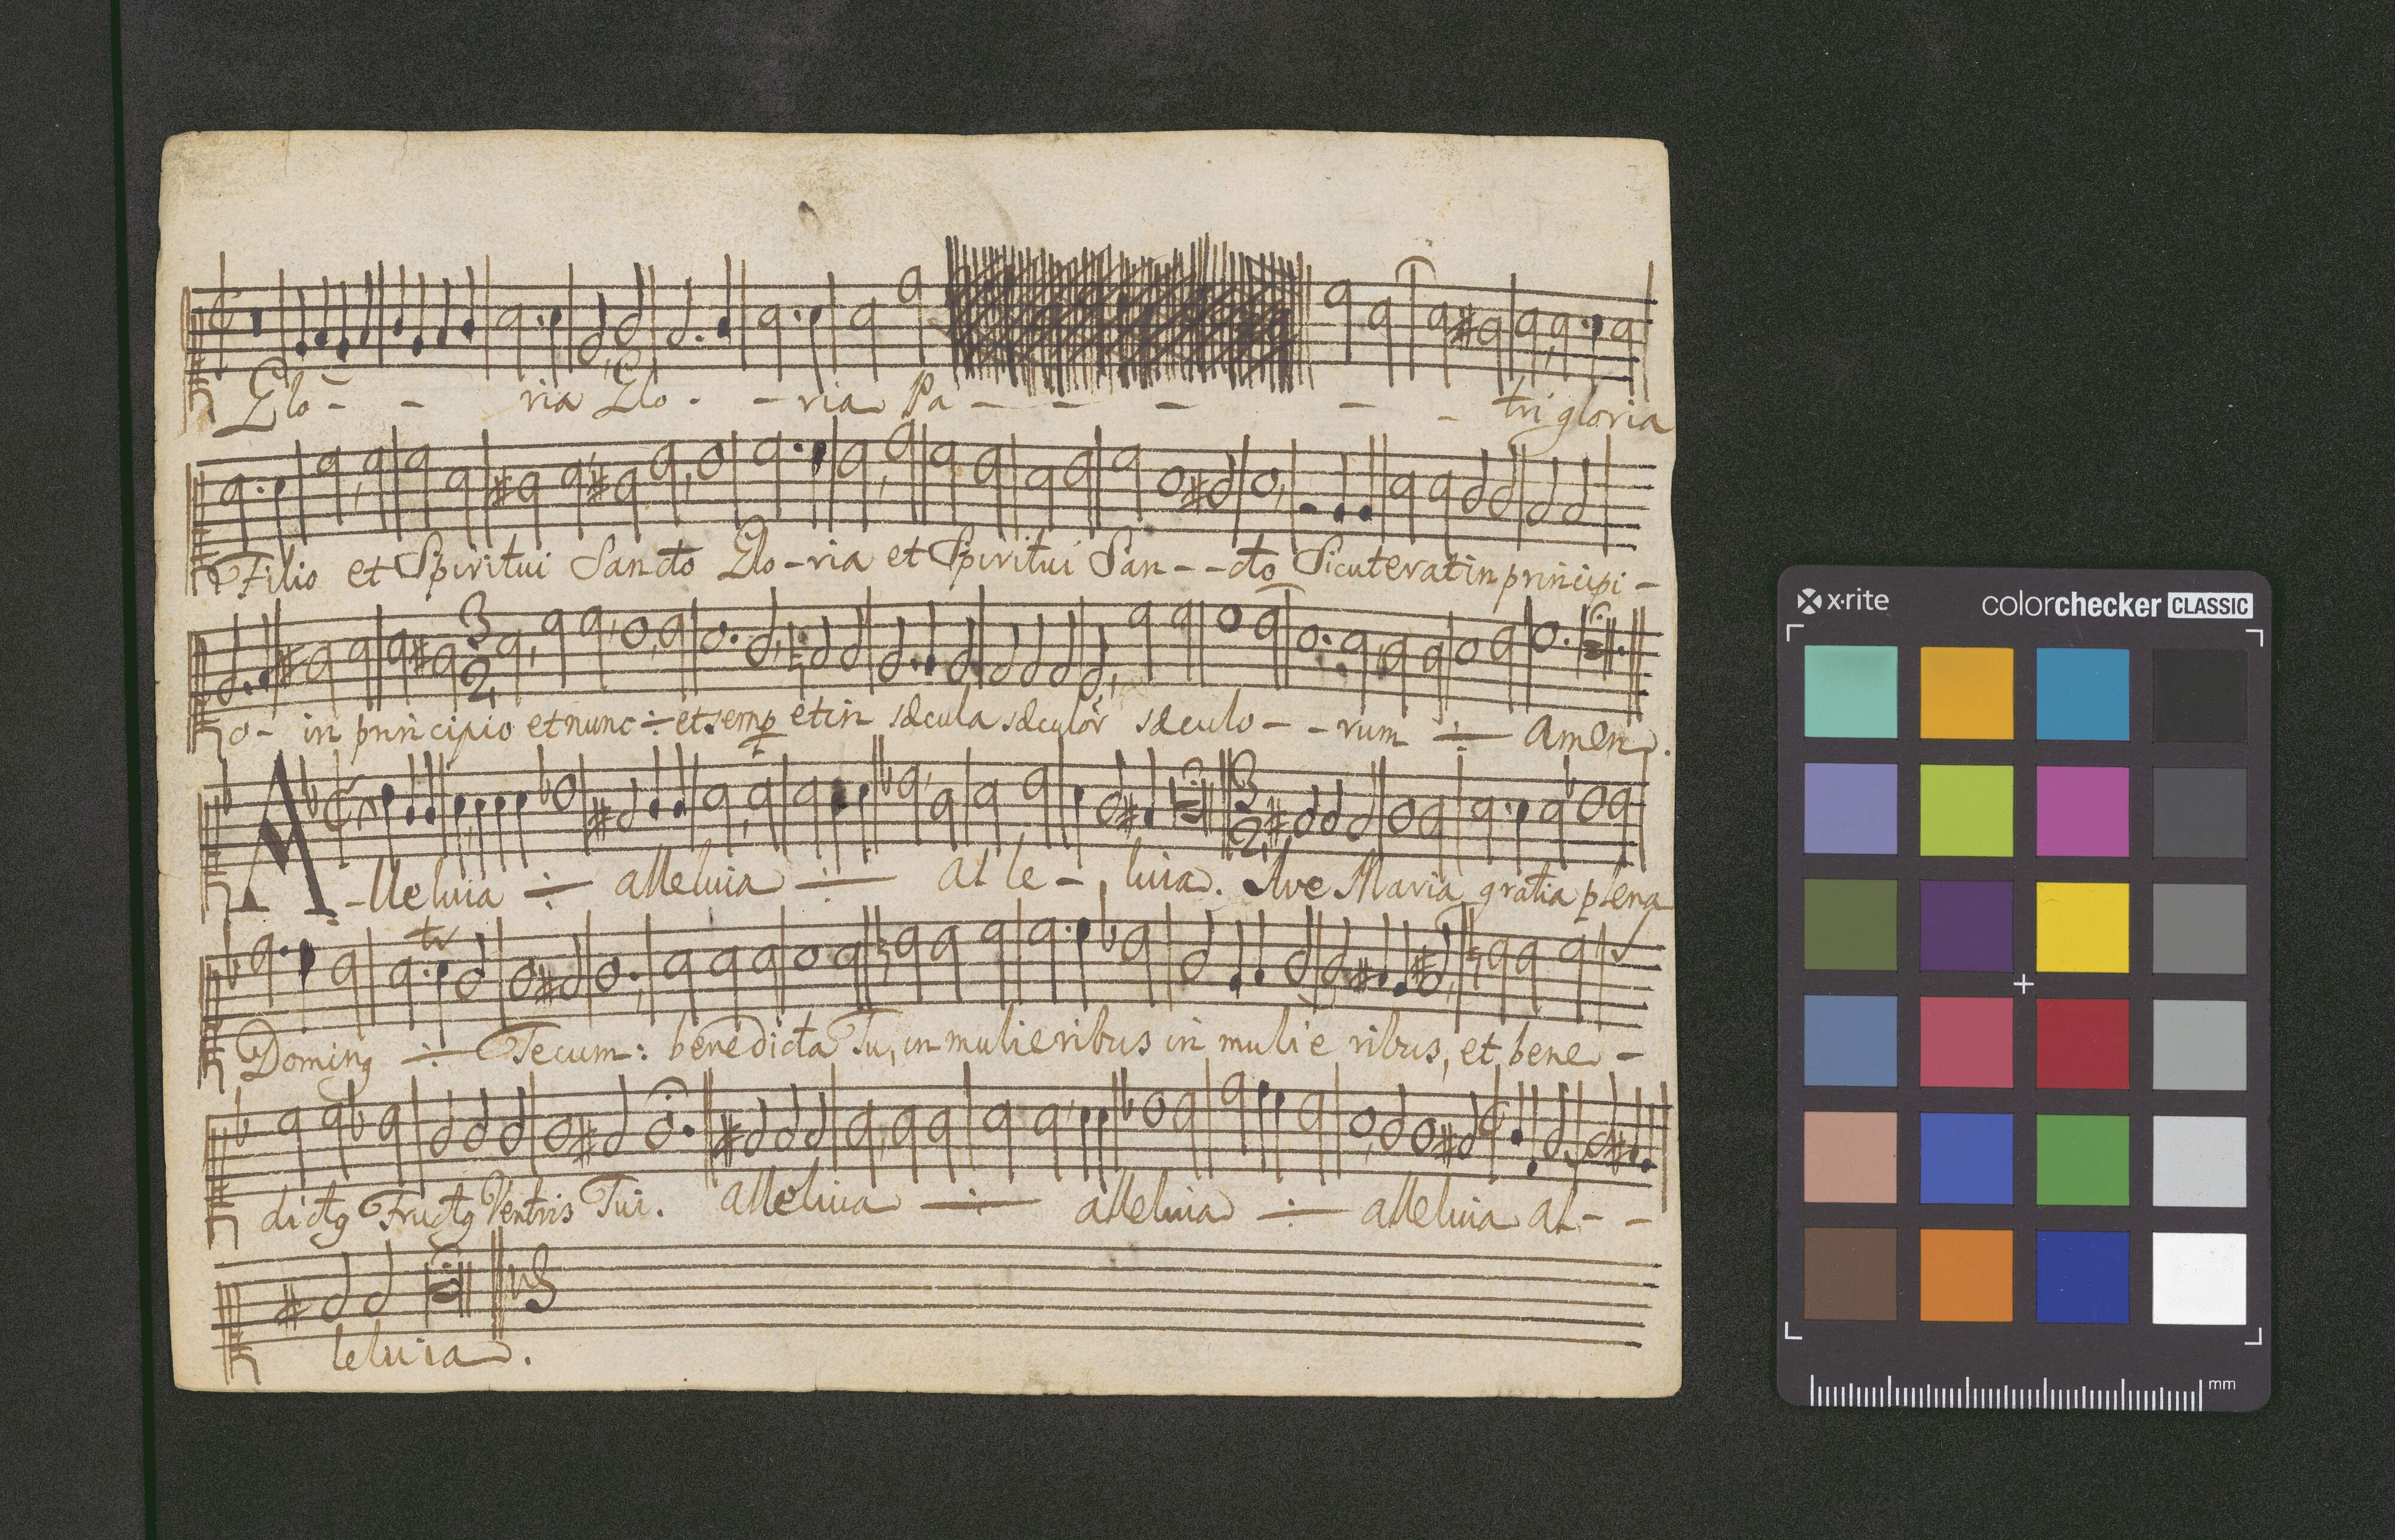 Glo - - ria Glo - - ria Pa - - - - - tri gloria
Filio et Spiritui Sancto Glo - ria et Spiritui San - - cto Sicut erat in principi -
o - in principio et nunc ÷ et semp et in sæcula sæculor̃ sæculo - - rum ÷ Amen.
3 2
A - lleluia ÷ alleluia ÷ al le - luia. Ave Maria gratia plena
3 2
tr
Doming ÷ Tecum: benedicta Tu, in mulieribus in mulie ribus, et bene -
dictg Fructg Ventris Tui. alleluia ÷ alleluia ÷ alleluia al - -
leluia.
x·rite colorchecker CLASSIC
mm